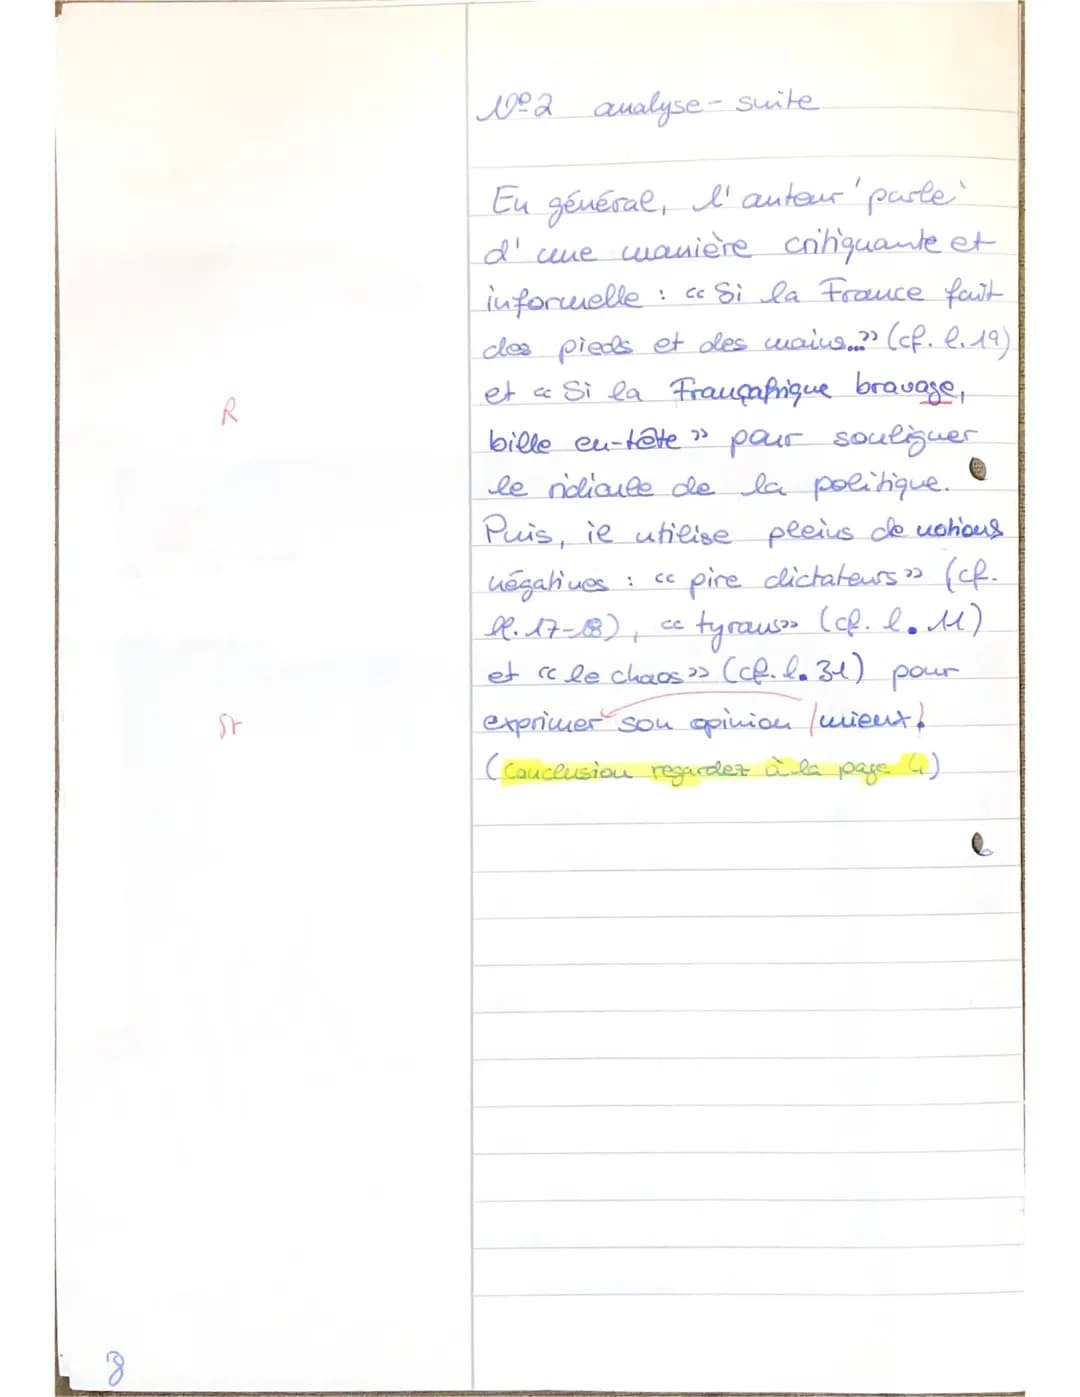 Nº2 analyse - suite
En général, l'auteur 'parle'
d'une manière critiquante et
informelle : « Si la France fait
des pieds et des mains...» (cf. l. 19)
et « Si la Françafrique bravage,
R
bille en-tête » pour souligner
le ridicule de la politique.
Puis, il utilise pleins de notions
négatives : « pire dictateurs » (cf.
ll. 17-18), « tyrans» (cf. l. 11)
et « le chaos » (cf. l. 31) pour
St
exprimer son opinion /mieux/.
(Conclusion regardez à la page 4)
8